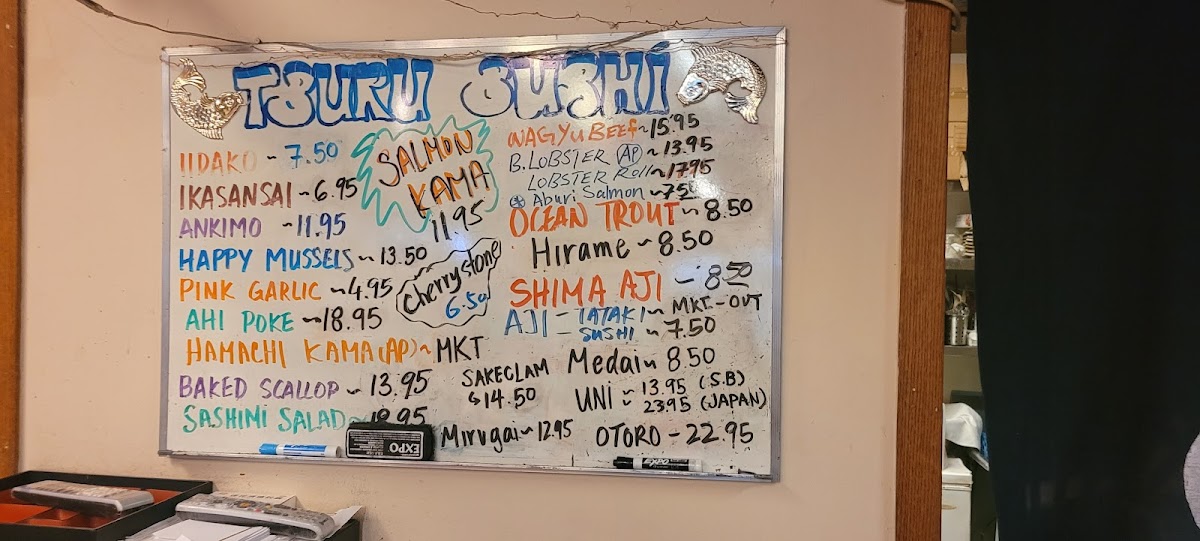 TSURU SUSHI
IIDAKO ~ 7.50
IKASANSAI ~ 6.95
ANKIMO ~ 11.95
HAPPY MUSSELS ~ 13.50
PINK GARLIC ~ 4.95
AHI POKE ~ 18.95
HAMACHI KAMA (AP) ~ MKT
BAKED SCALLOP ~ 13.95
SASHIMI SALAD ~ 18.95
SALMON
KAMA
11.95
Cherrystone
6.50
SAKECLAM
14.50
Mirugai ~ 12.95
WAGYU BEEF ~ 15.95
B. LOBSTER (AP) ~ 13.95
LOBSTER Roll ~ 17.95
Aburi Salmon ~ 7.50
OCEAN TROUT ~ 8.50
Hirame ~ 8.50
SHIMA AJI - 8.50
AJI = TATAKI ~ MKT. - OUT
SUSHI ~ 7.50
Medai ~ 8.50
UNI ~ 13.95 (S.B)
~ 23.95 (JAPAN)
OTORO - 22.95
EXPO
EXPO